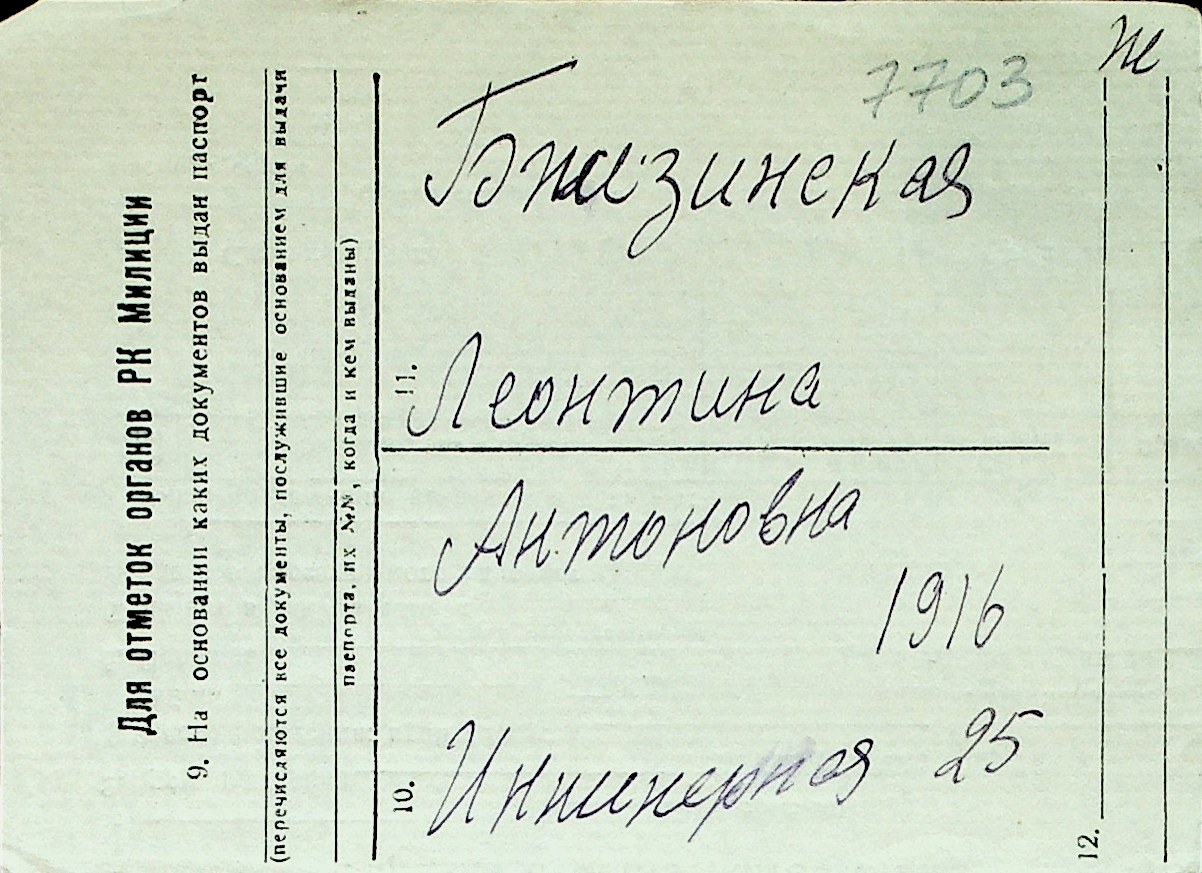 Для отметок органов РК Милиции
9. На основании каких документов выдан паспорт
(перечисляются все документы, послужившие основанием для выдачи
паспорта, их №№, когда и кем выданы)
10.
11.
12.
7703
Бжизинская
Леонтина
Антоновна
1916
Инженерная 25